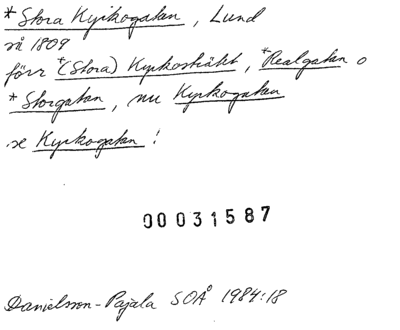 *Stora Kyrkogatan, Lund
så 1809
förr *(Stora) Kyrkosträtet, *Realgatan o
*Storgatan, nu Kyrkogatan
se Kyrkogatan!
00031587
Danielsson-Pajala SOÅ 1984:18